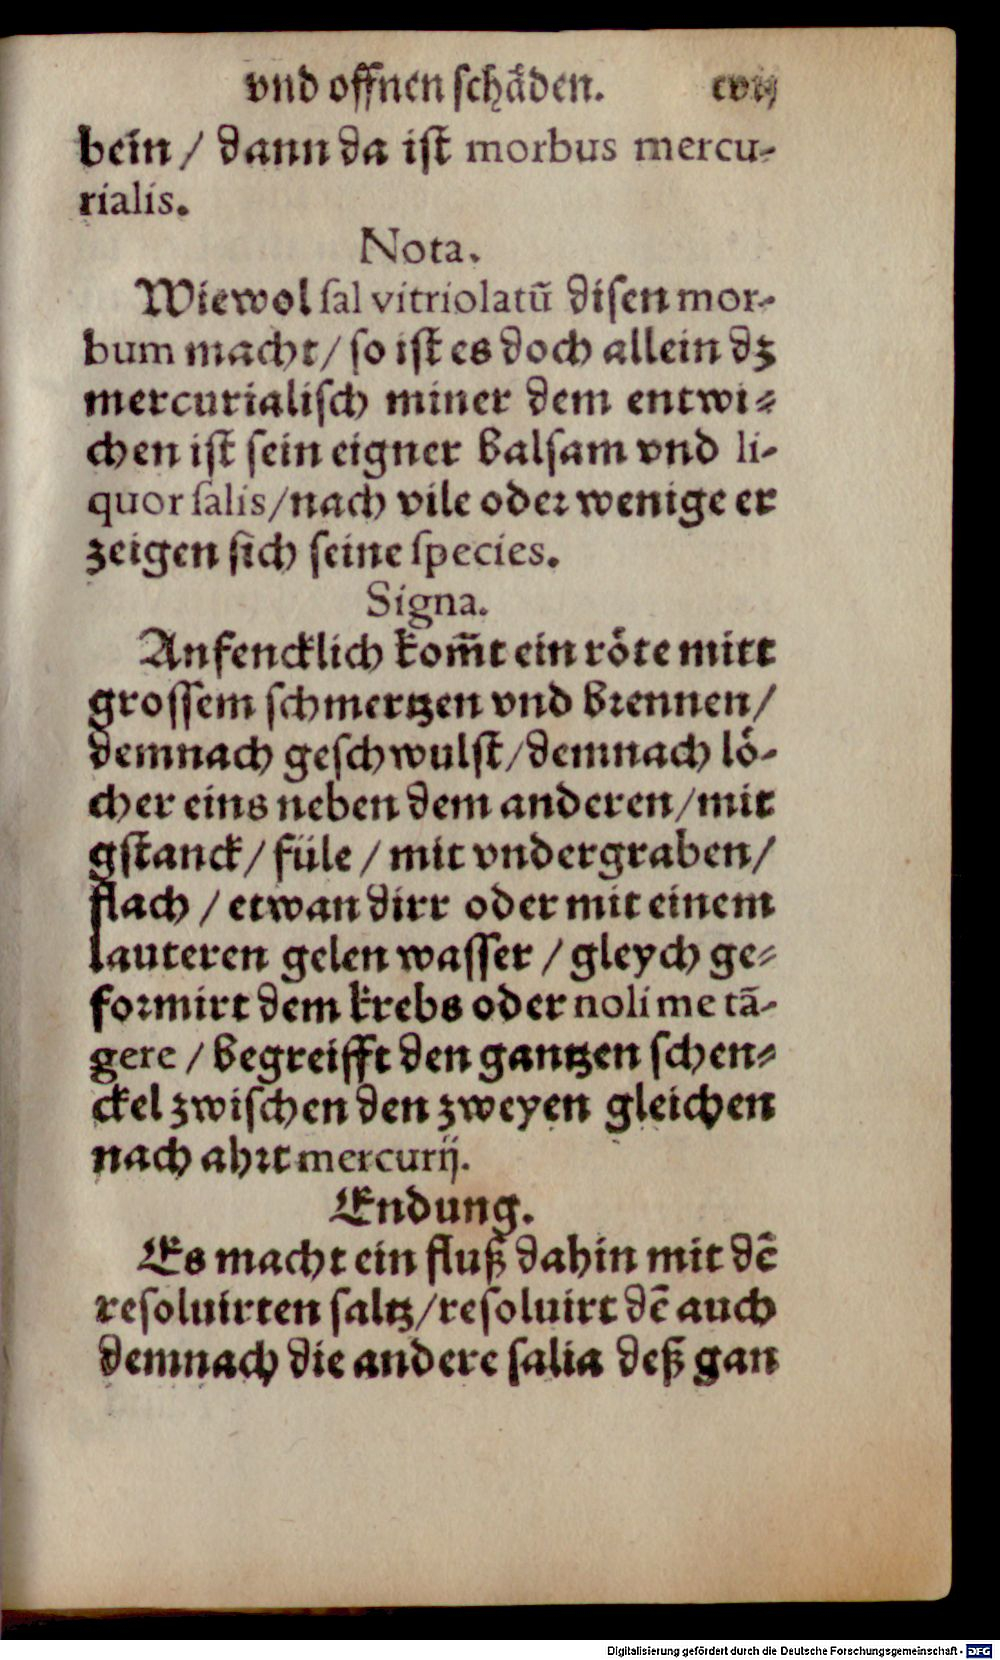 vnd offnen schäden. cvij
bein / dann da ist morbus mercu-
rialis.
Nota.
Wiewol sal vitriolatū disen mor-
bum macht / so ist es doch allein dz
mercurialisch miner dem entwi-
chen ist sein eigner balsam vnd li-
quor salis / nach vile oder wenige er
zeigen sich seine species.
Signa.
Anfencklich kom̄t ein röte mitt
grossem schmertzen vnd brennen /
demnach geschwulst / demnach lö-
cher eins neben dem anderen / mit
gstanck / füle / mit vndergraben /
flach / etwan dirr oder mit einem
lauteren gelen wasser / gleych ge-
formirt dem krebs oder noli me tā-
gere / begreifft den gantzen schen-
ckel zwischen den zweyen gleichen
nach ahrt mercurij.
Endung.
Es macht ein fluß dahin mit dē
resoluirten saltz / resoluirt dē auch
demnach die andere salia deß gan
Digitalisierung gefördert durch die Deutsche Forschungsgemeinschaft - DFG